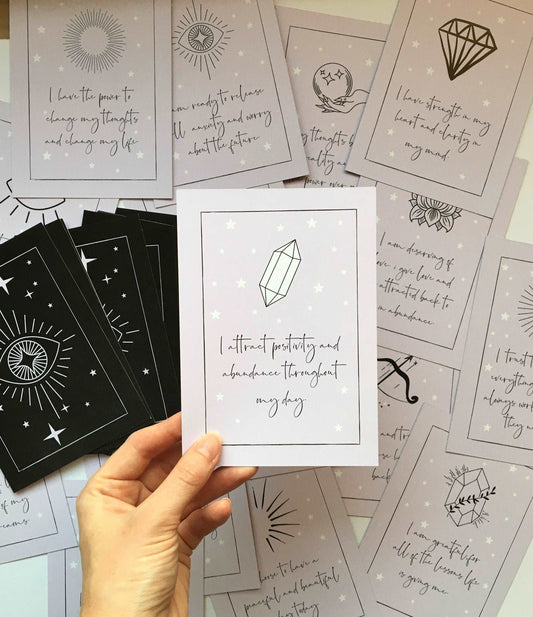 I have the power to
change my thoughts
and change my life
am ready to release
all anxiety and worry
about the future
my thoughts b
reality a
power over
I have strength in my
heart and clarity in
my mind
I am deserving of
love I give love and
attracted back to
m abundance
I attract positivity and
abundance throughout
my day
I trust t
everything
always work
they n
and t
back
I am grateful for
all of the lessons life
is giving me
hoose to have a
peaceful and beautiful
day today
of my
dreams